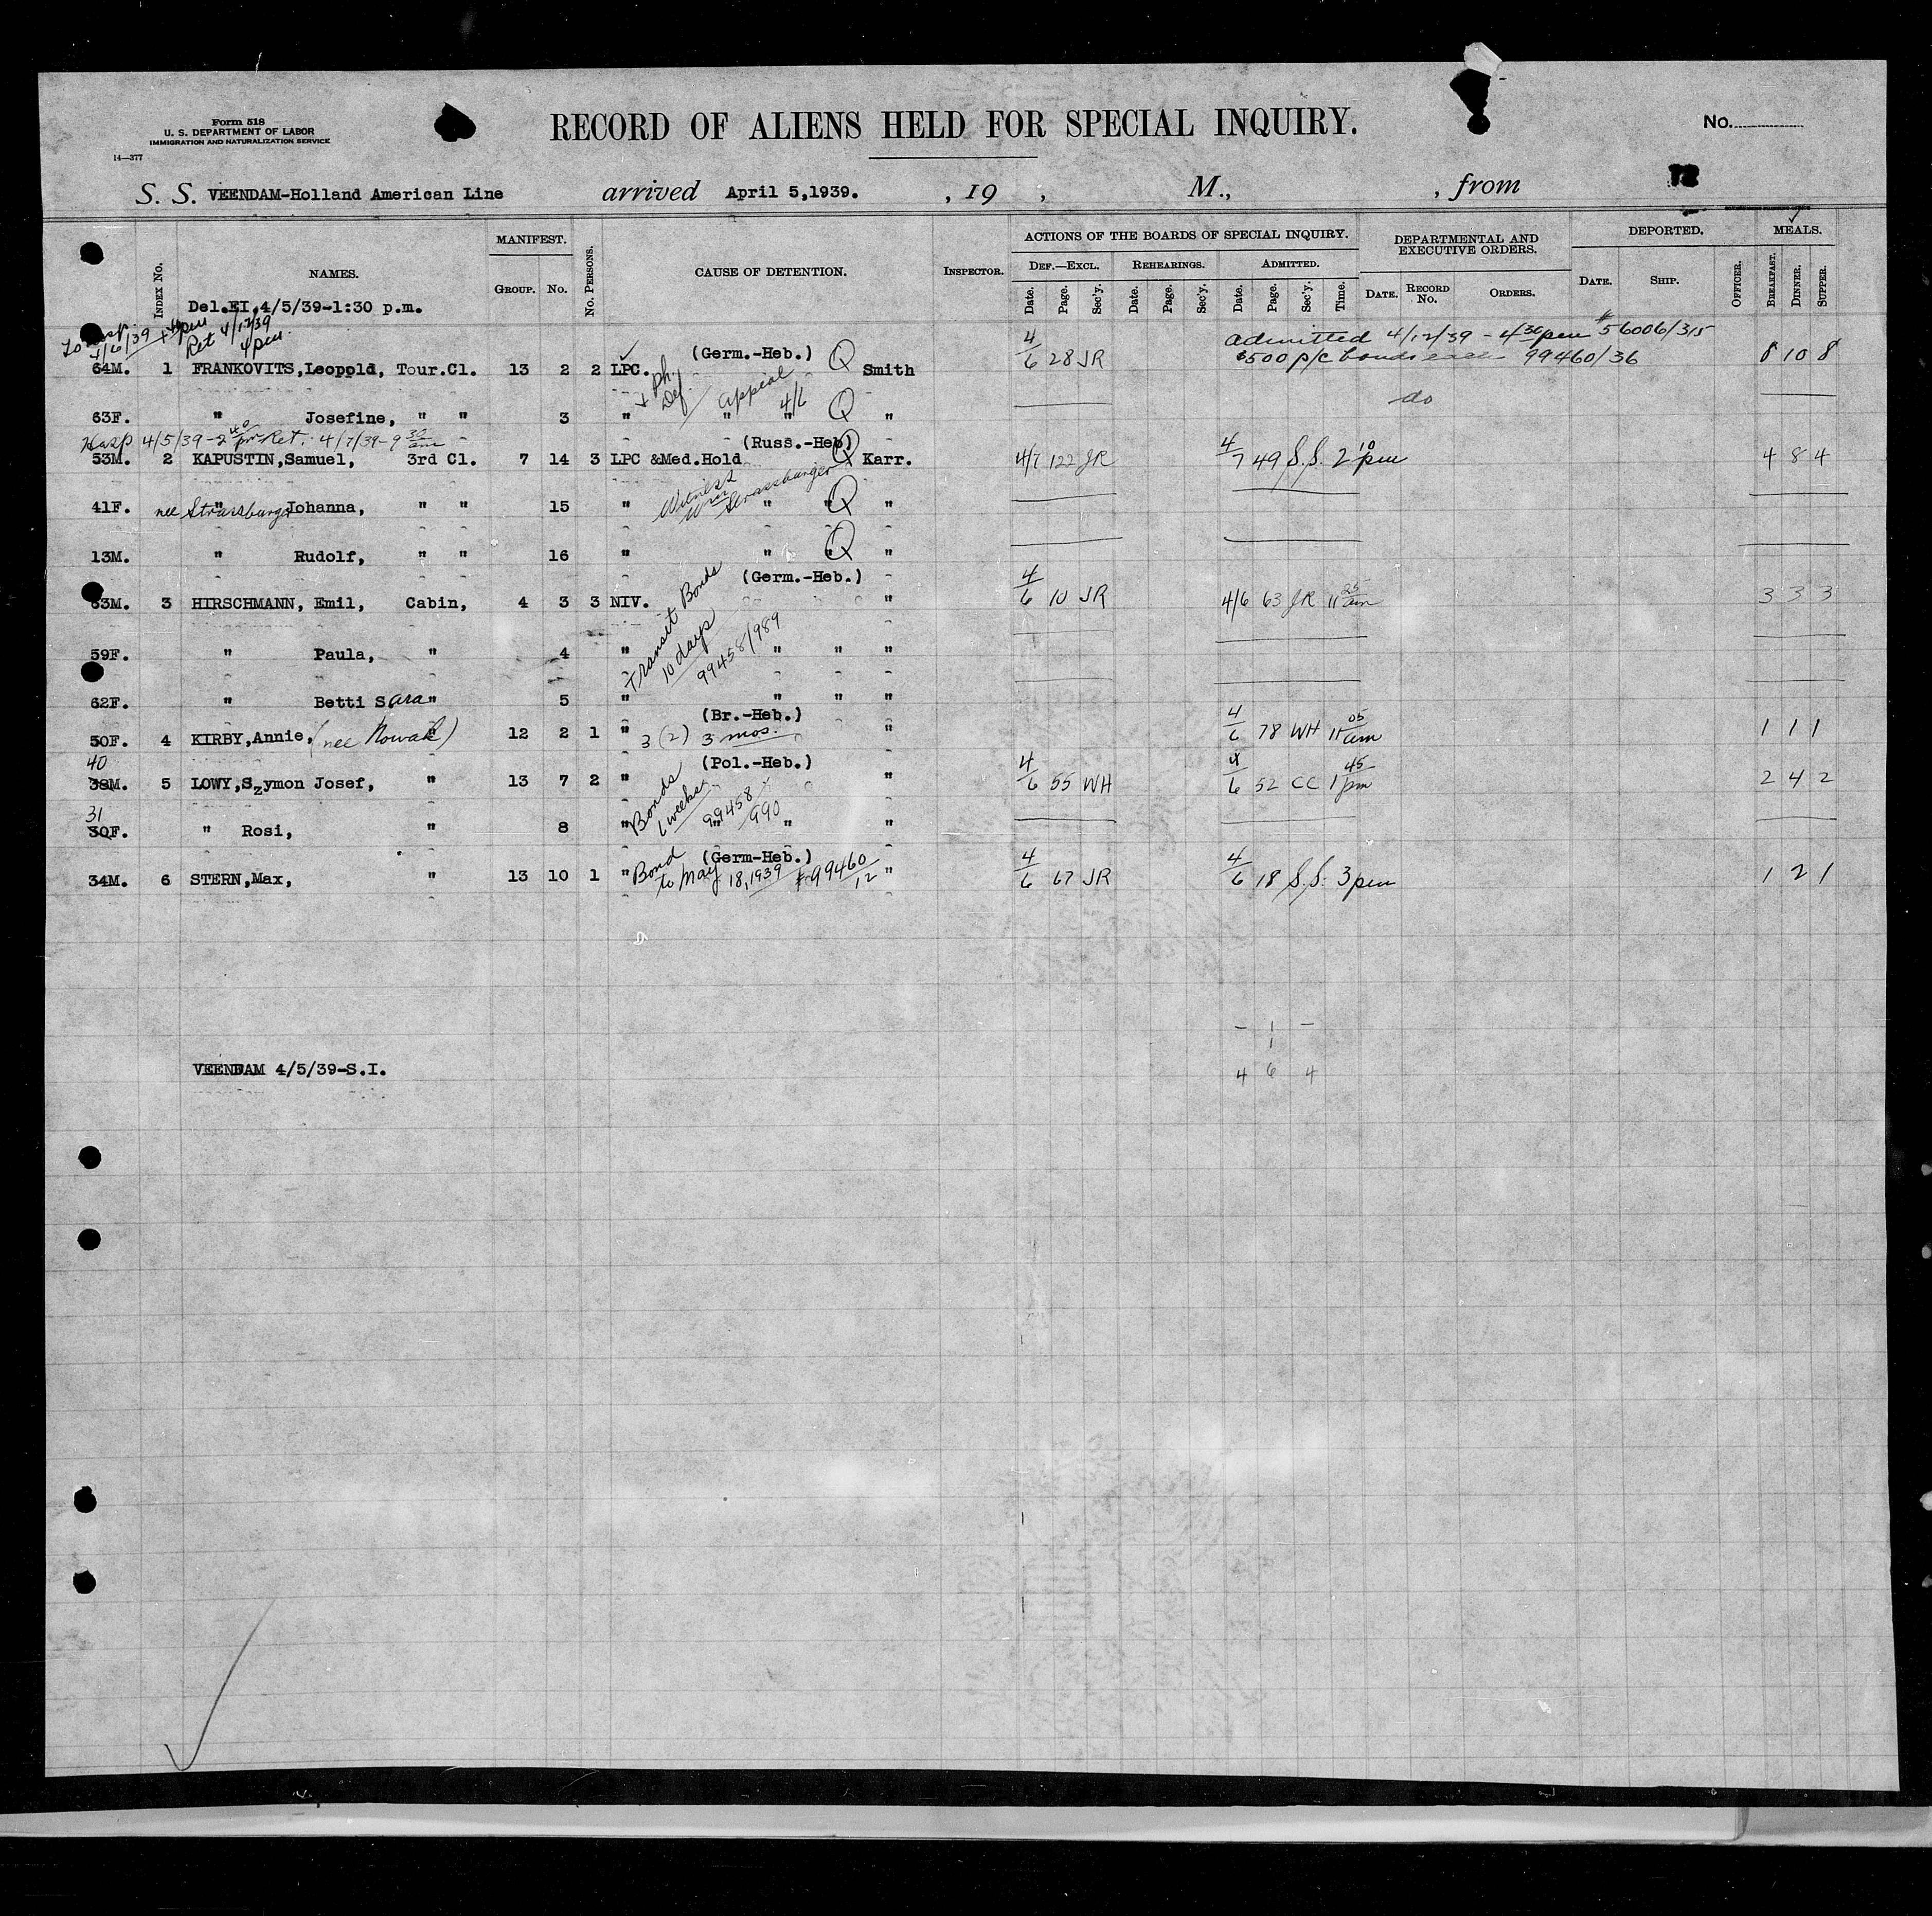 Form 518
U. S. DEPARTMENT OF LABOR
IMMIGRATION AND NATURALIZATION SERVICE
14—377
RECORD OF ALIENS HELD FOR SPECIAL INQUIRY.
No.
72
S. S. VEENDAM-Holland American Line arrived April 5,1939. , 19 , M., , from
INDEX No. NAMES. MANIFEST. GROUP. No. No. PERSONS. CAUSE OF DETENTION. INSPECTOR. ACTIONS OF THE BOARDS OF SPECIAL INQUIRY. DEF.—EXCL. Date. Page. Sec'y. REHEARINGS. Date. Page. Sec'y. ADMITTED. Date. Page. Sec'y. Time. DEPARTMENTAL AND EXECUTIVE ORDERS. DATE. RECORD No. ORDERS. DEPORTED. DATE. SHIP. OFFICER. MEALS. BREAKFAST. DINNER. SUPPER.
Del.EI,4/5/39-1:30 p.m.
To Hosp. 4/6/39 Ret 4/12/39 4 pm.
(Germ.-Heb.) Admitted 4/12/39 - 4 30 pm #56006/315
64M. 1 FRANKOVITS,Leopold, Tour.Cl. 13 2 2 LPC. Q Smith 4/6 28 JR $500 p/c bonds each 99460/36 8 10 8
+ Ph. Def. appeal 4/6
63F. " Josefine, " " 3 " " " Q " do
Hosp 4/5/39-2 40 pm Ret. 4/7/39-9 30 am (Russ.-Heb)
53M. 2 KAPUSTIN,Samuel, 3rd Cl. 7 14 3 LPC &Med.Hold Q Karr. 4/7 122 JR 4/7 49 S.S. 2 10 pm 4 8 4
Witness Wm Strassburger
41F. nee Strassburger " Johanna, " " 15 " " " Q "
13M. " Rudolf, " " 16 " " " Q "
(Germ.-Heb.)
63M. 3 HIRSCHMANN, Emil, Cabin, 4 3 3 NIV. " 4/6 10 JR 4/6 63 JR 11 25 am 3 3 3
Transit Bonds 10 days 99458/989
59F. " Paula, " 4 " " " "
62F. " Betti Sara " 5 " " " "
(Br.-Heb.)
50F. 4 KIRBY,Annie, (nee Nowak) " 12 2 1 " 3 (2) 3 mos. " 4/6 78 WH 11 05 am 1 1 1
40 (Pol.-Heb.)
38M. 5 LOWY,Szymon Josef, " 13 7 2 " " 4/6 55 WH 4/6 52 CC 1 45 pm 2 4 2
Bonds 6 weeks 99458/990
31
30F. " Rosi, " 8 " " " "
(Germ-Heb.)
34M. 6 STERN,Max, " 13 10 1 " Bond to May 18,1939 #99460/12 " 4/6 67 JR 4/6 18 S.S. 3 pm 1 2 1
- 1 -
1
VEENDAM 4/5/39-S.I. 4 6 4